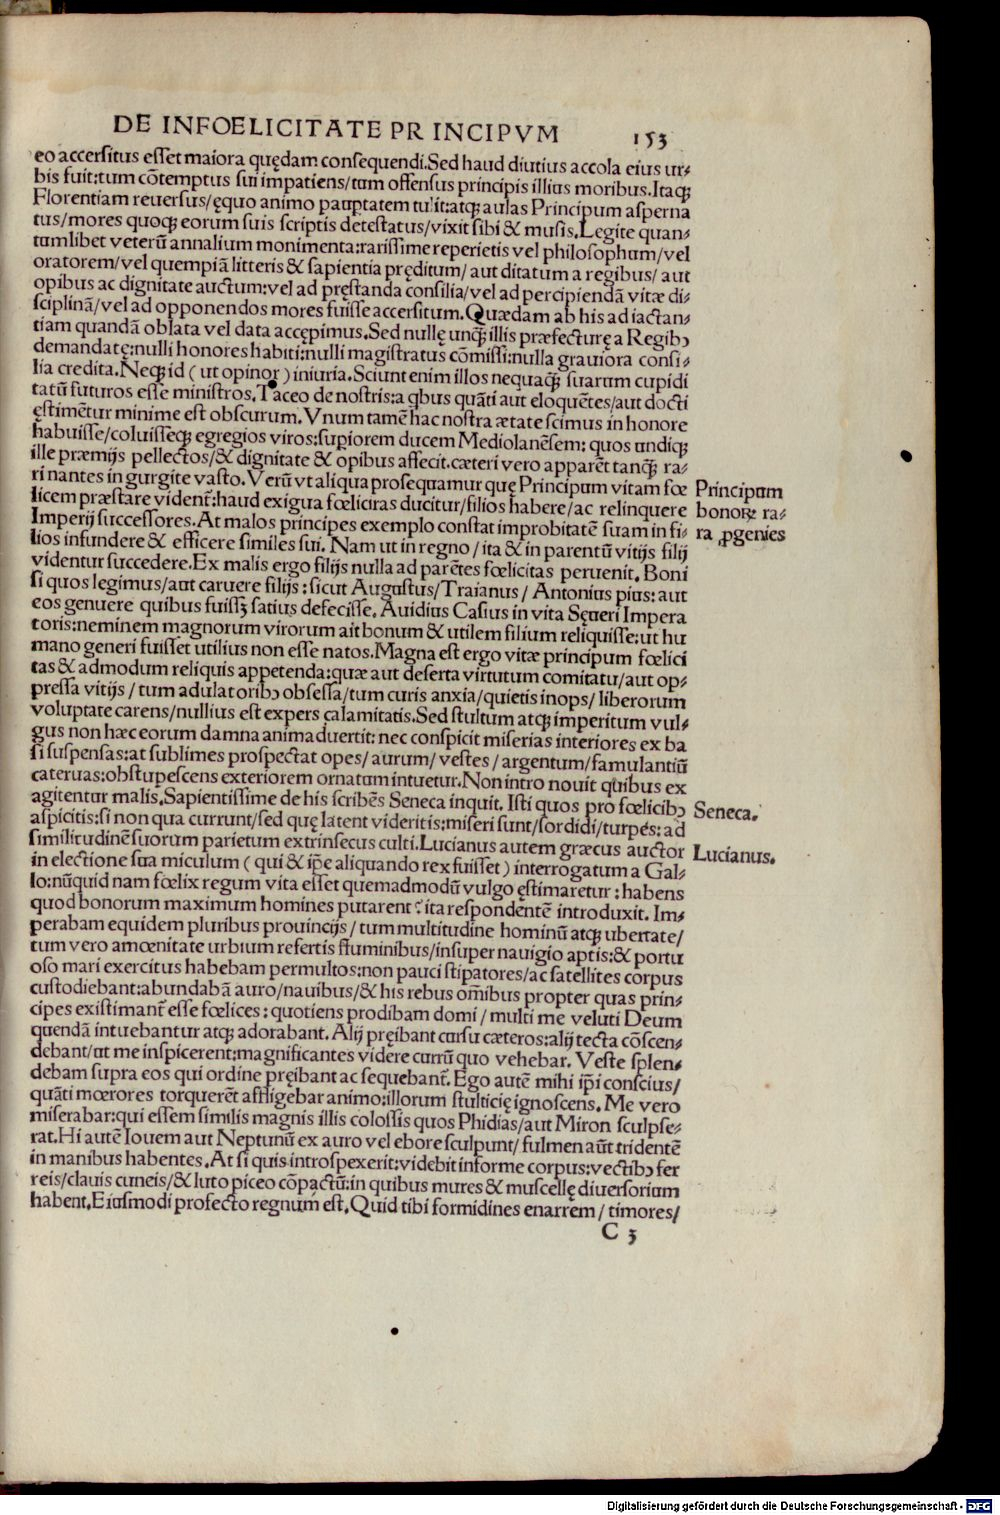 DE INFOELICITATE PRINCIPVM 153
eo accersitus esset maiora quędam consequendi. Sed haud diutius accola eius ur-
bis fuit: tum cōtemptus sui impatiens/tum offensus principis illius moribus. Itaqꝫ
Florentiam reuersus/ęquo animo paupertatem tulit: atqꝫ aulas Principum asperna
tus/mores quoqꝫ eorum suis scriptis detestatus/vixit sibi & musis. Legite quan-
tumlibet veterū annalium monimenta: rarissime reperietis vel philosophum/vel
oratorem/vel quempiā litteris & sapientia pręditum/ aut ditatum a regibus/ aut
opibus ac dignitate auctum: vel ad pręstanda consilia/vel ad percipiendā vitæ di-
sciplinā/vel ad opponendos mores fuisse accersitum. Quædam ab his ad iactan-
tiam quandā oblata vel data accępimus. Sed nullę unqꝫ illis præfecturę a Regibꝰ
demandatę: nulli honores habiti: nulli magistratus cōmissi: nulla grauiora consi-
lia credita. Neqꝫ id ( ut opinor ) iniuria. Sciunt enim illos nequaqꝫ suarum cupidi
tatū futuros esse ministros. Taceo de nostris: a qbus quāti aut eloquētes/aut docti
ęstimētur minime est obscurum. Vnum tamē hac nostra ætate scimus in honore
habuisse/coluisseqꝫ egregios viros: supiorem ducem Mediolanēsem: quos undiqꝫ
ille præmijs pellectos/& dignitate & opibus affecit. cæteri vero apparēt tanqꝫ ra-
ri nantes in gurgite vasto. Verū vt aliqua prosequamur quę Principum vitam fœ
licem præstare vident᷑: haud exigua fœlicitas ducitur/filios habere/ac relinquere
Imperij successores. At malos principes exemplo constat improbitatē suam in fi-
lios infundere & efficere similes sui. Nam ut in regno / ita & in parentū vitijs filij
videntur succedere. Ex malis ergo filijs nulla ad parētes fœlicitas peruenit. Boni
si quos legimus/aut caruere filijs: sicut Augustus/Traianus/ Antonius pius: aut
eos genuere quibus fuissꝫ satius defecisse. Auidius Casius in vita Sęueri Impera
toris: neminem magnorum virorum ait bonum & utilem filium reliquisse: ut hu
mano generi fuisset utilius non esse natos. Magna est ergo vitæ principum fœlici
tas & admodum reliquis appetenda: quæ aut deserta virtutum comitatu/aut op-
pressa vitijs / tum adulatoribꝰ obsessa/tum curis anxia/quietis inops/ liberorum
voluptate carens/nullius est expers calamitatis. Sed stultum atqꝫ imperitum vul-
gus non hæc eorum damna animaduertit: nec conspicit miserias interiores ex ba
si suspensas: at sublimes prospectat opes/ aurum/ vestes / argentum/ famulantiū
cateruas: obstupescens exteriorem ornatum intuetur. Non intro nouit quibus ex
agitentur malis. Sapientissime de his scribēs Seneca inquit. Isti quos pro fœlicibꝰ
aspicitis: si non qua currunt/sed quę latent videritis: miseri sunt/sordidi/turpes: ad
similitudinē suorum parietum extrinsecus culti. Lucianus autem græcus auctor
in electione sua miculum ( qui & ip̄e aliquando rex fuisset ) interrogatum a Gal-
lo: nūquid nam fœlix regum vita esset quemadmodū vulgo ęstimaretur: habens
quod bonorum maximum homines putarent? ita respondentē introduxit. Im-
perabam equidem pluribus prouincijs/ tum multitudine hominū atqꝫ ubertate/
tum vero amœnitate urbium refertis fluminibus/insuper nauigio aptis: & portu
oso mari exercitus habebam permultos: non pauci stipatores/ ac satellites corpus
custodiebant: abundabā auro/nauibus/& his rebus om̄ibus propter quas prin-
cipes existimant᷑ esse fœlices: quotiens prodibam domi / multi me veluti Deum
quendā intuebantur atqꝫ adorabant. Alij pręibant cursu cæteros: alij tecta cōscen-
debant/ut me inspicerent: magnificantes videre currū quo vehebar. Veste splen-
debam supra eos qui ordine pręibant ac sequebant᷑. Ego autē mihi ip̄i conscius/
quāti mœrores torquerēt affligebar animo: illorum stulticię ignoscens. Me vero
miserabar: qui essem similis magnis illis colossis quos Phidias/aut Miron sculpse-
rat. Hi autē Iouem aut Neptunū ex auro vel ebore sculpunt/ fulmen aūt tridentē
in manibus habentes. At si quis introspexerit: videbit informe corpus: vectibꝰ fer
reis/clauis cuneis/& luto piceo cōpactū: in quibus mures & muscellę diuersorium
habent. Eiusmodi profecto regnum est. Quid tibi formidines enarrem/ timores/
C 3
Principum
bonoꝝ ra-
ra ꝓgenies
Seneca.
Lucianus.
Digitalisierung gefördert durch die Deutsche Forschungsgemeinschaft - DFG